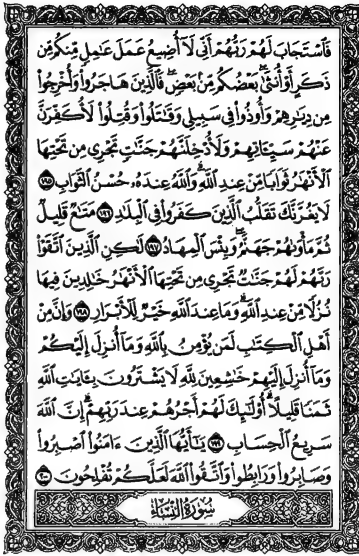 فَٱسْتَجَابَ لَهُمْ رَبُّهُمْ أَنِّى لَآ أُضِيعُ عَمَلَ عَٰمِلٍ مِّنكُم مِّن
ذَكَرٍ أَوْ أُنثَىٰ ۖ بَعْضُكُم مِّنۢ بَعْضٍ ۖ فَٱلَّذِينَ هَاجَرُوا۟ وَأُخْرِجُوا۟
مِن دِيَٰرِهِمْ وَأُوذُوا۟ فِى سَبِيلِى وَقَٰتَلُوا۟ وَقُتِلُوا۟ لَأُكَفِّرَنَّ
عَنْهُمْ سَيِّـَٔاتِهِمْ وَلَأُدْخِلَنَّهُمْ جَنَّٰتٍ تَجْرِى مِن تَحْتِهَا
ٱلْأَنْهَٰرُ ثَوَابًا مِّنْ عِندِ ٱللَّهِ ۗ وَٱللَّهُ عِندَهُۥ حُسْنُ ٱلثَّوَابِ ١٩٥
لَا يَغُرَّنَّكَ تَقَلُّبُ ٱلَّذِينَ كَفَرُوا۟ فِى ٱلْبِلَٰدِ ١٩٦ مَتَٰعٌ قَلِيلٌ
ثُمَّ مَأْوَىٰهُمْ جَهَنَّمُ ۚ وَبِئْسَ ٱلْمِهَادُ ١٩٧ لَٰكِنِ ٱلَّذِينَ ٱتَّقَوْا۟
رَبَّهُمْ لَهُمْ جَنَّٰتٌ تَجْرِى مِن تَحْتِهَا ٱلْأَنْهَٰرُ خَٰلِدِينَ فِيهَا
نُزُلًا مِّنْ عِندِ ٱللَّهِ ۗ وَمَا عِندَ ٱللَّهِ خَيْرٌ لِّلْأَبْرَارِ ١٩٨ وَإِنَّ مِنْ
أَهْلِ ٱلْكِتَٰبِ لَمَن يُؤْمِنُ بِٱللَّهِ وَمَآ أُنزِلَ إِلَيْكُمْ
وَمَآ أُنزِلَ إِلَيْهِمْ خَٰشِعِينَ لِلَّهِ لَا يَشْتَرُونَ بِـَٔايَٰتِ ٱللَّهِ
ثَمَنًا قَلِيلًا ۗ أُو۟لَٰٓئِكَ لَهُمْ أَجْرُهُمْ عِندَ رَبِّهِمْ ۗ إِنَّ ٱللَّهَ
سَرِيعُ ٱلْحِسَابِ ١٩٩ يَٰٓأَيُّهَا ٱلَّذِينَ ءَامَنُوا۟ ٱصْبِرُوا۟
وَصَابِرُوا۟ وَرَابِطُوا۟ وَٱتَّقُوا۟ ٱللَّهَ لَعَلَّكُمْ تُفْلِحُونَ ٢٠٠
سُورَةُ النِّسَاءِ